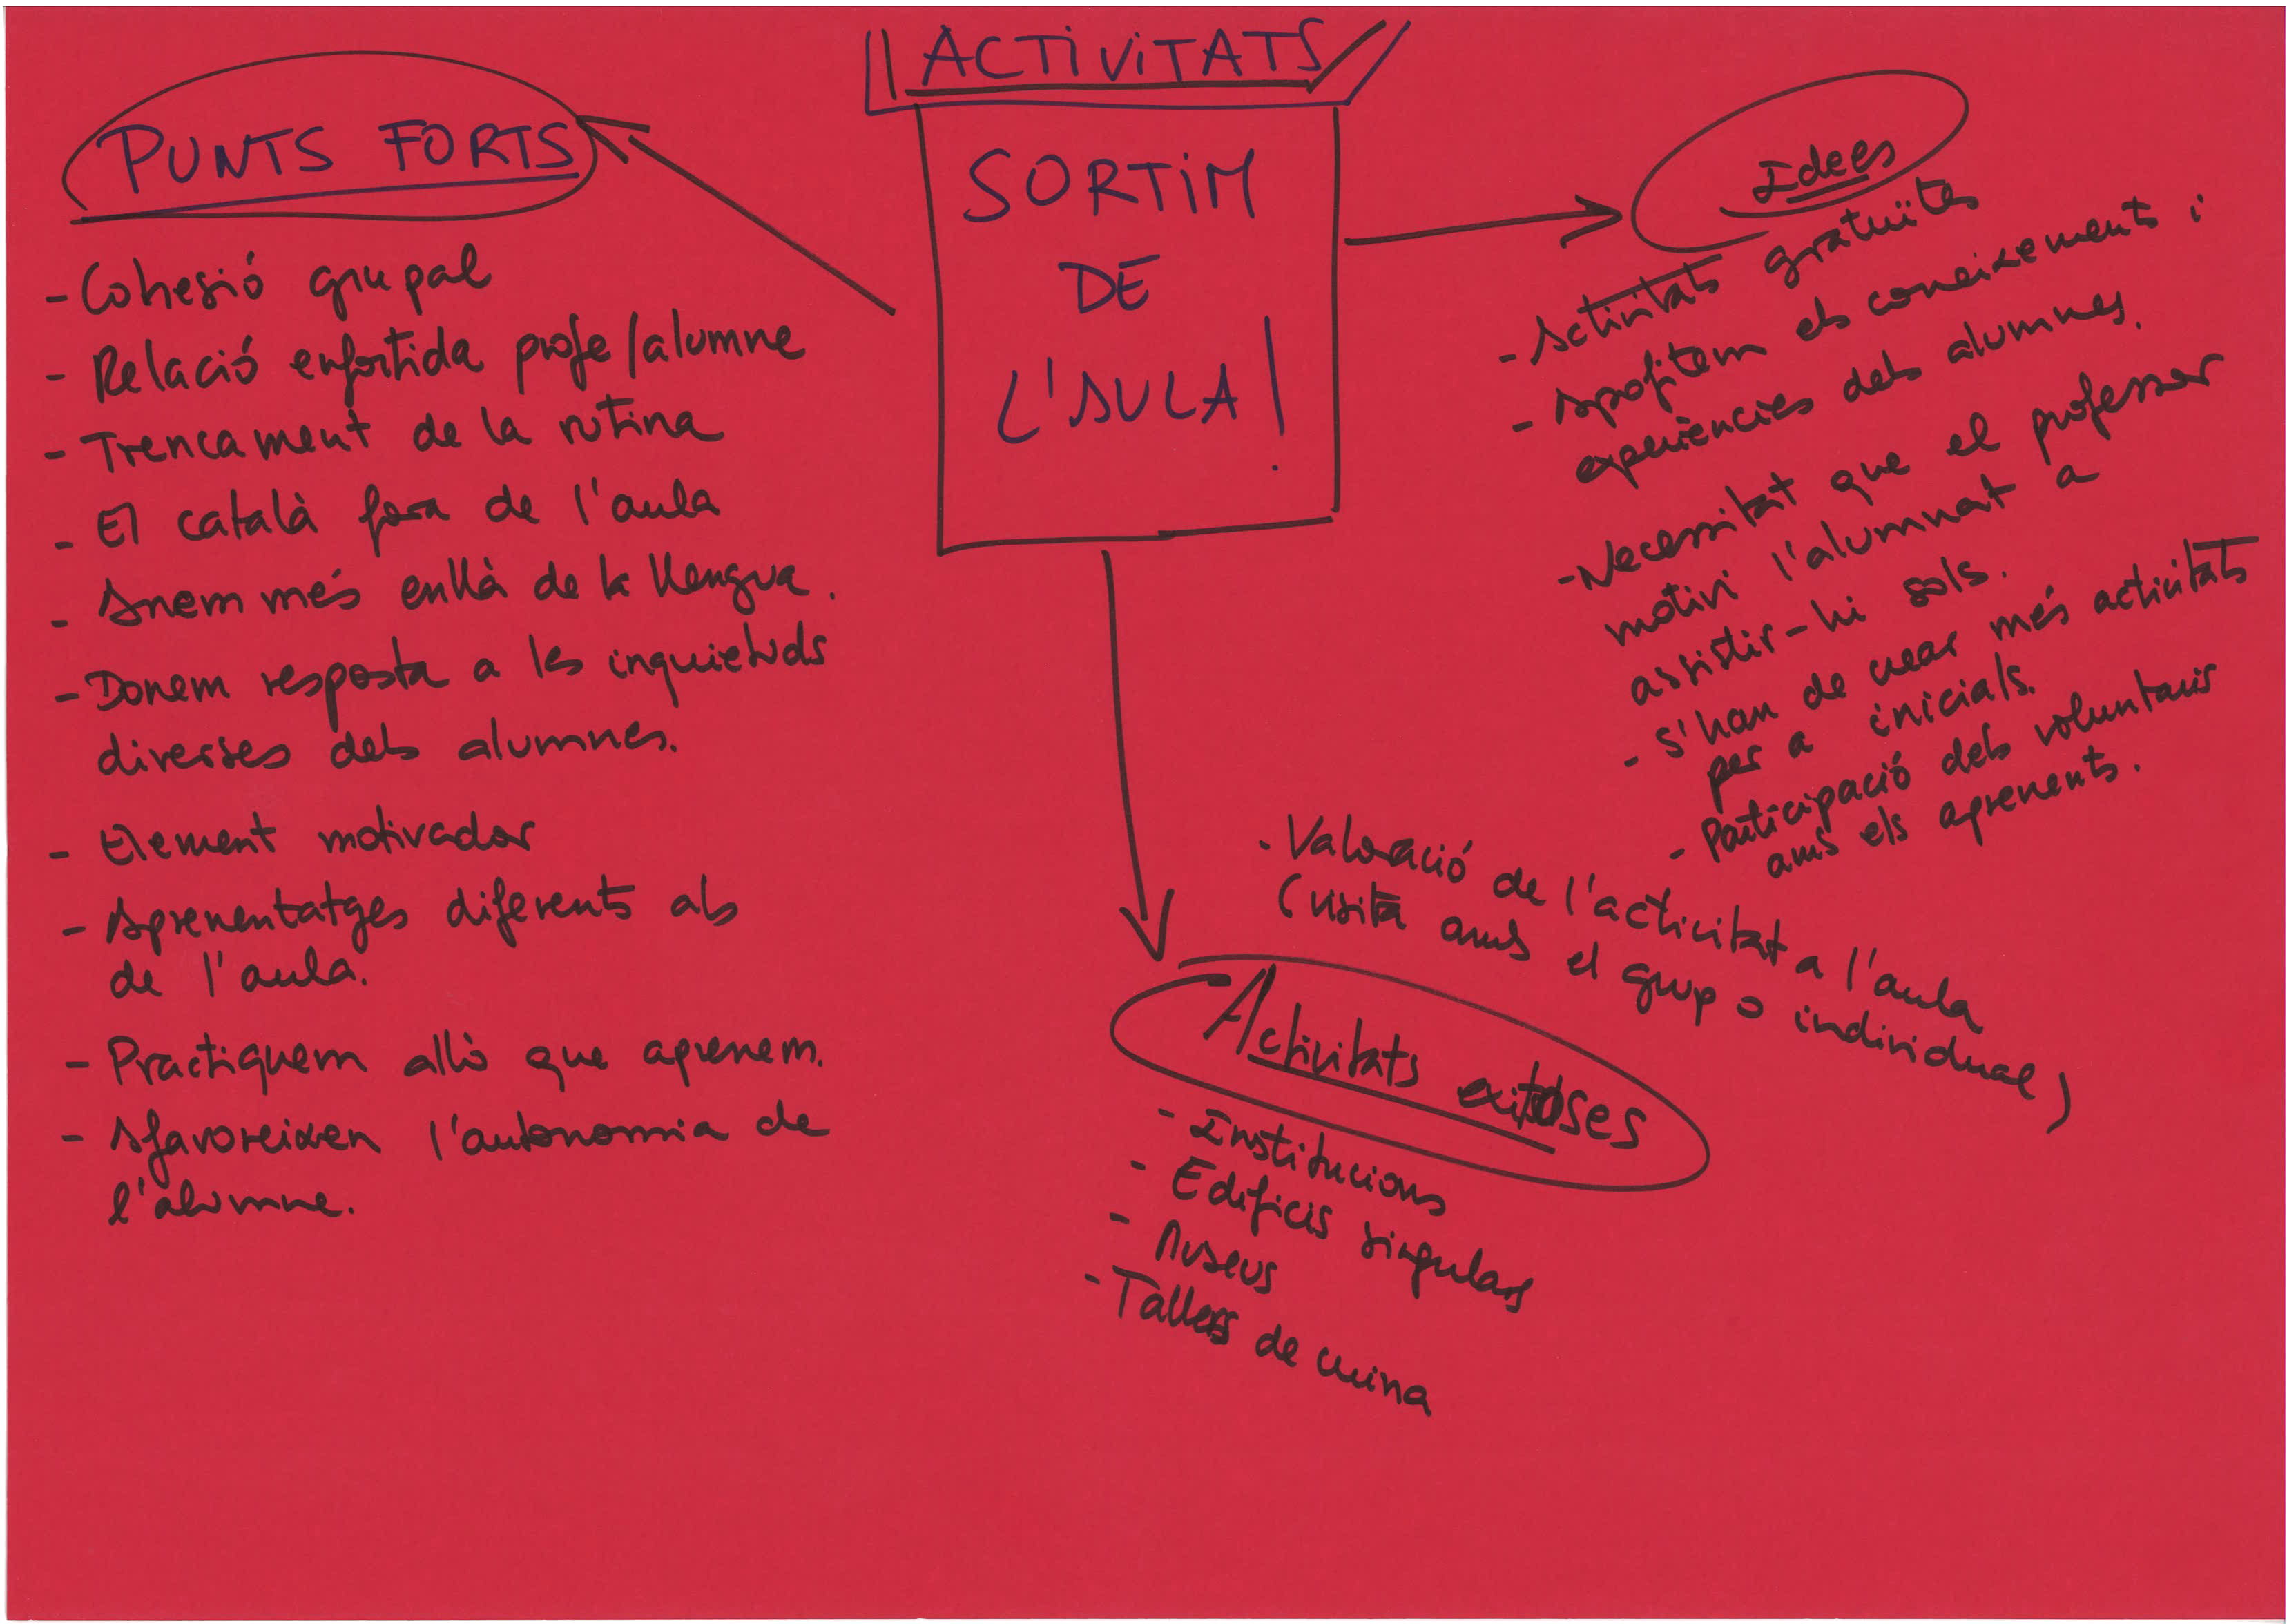 ACTIVITATS
SORTIM
DE
L'AULA!
PUNTS FORTS
- Cohesió grupal
- Relació enfortida profe/alumne
- Trencament de la rutina
- El català fora de l'aula
- Anem més enllà de la llengua.
- Donem resposta a les inquietuds
diverses dels alumnes.
- Element motivador
- Aprenentatges diferents als
de l'aula.
- Practiquem allò que aprenem.
- Afavoreixen l'autonomia de
l'alumne.
Idees
- Activitats gratuïtes
- Aprofitem els coneixements i
experiències dels alumnes.
- Necessitat que el professor
motivi l'alumnat a
assistir-hi sols.
- S'han de crear més activitats
per a inicials.
- Participació dels voluntaris
amb els aprenents.
- Valoració de l'activitat a l'aula
(visita amb el grup o individual)
Activitats exitoses
- Institucions
- Edificis singulars
- Museus
- Tallers de cuina